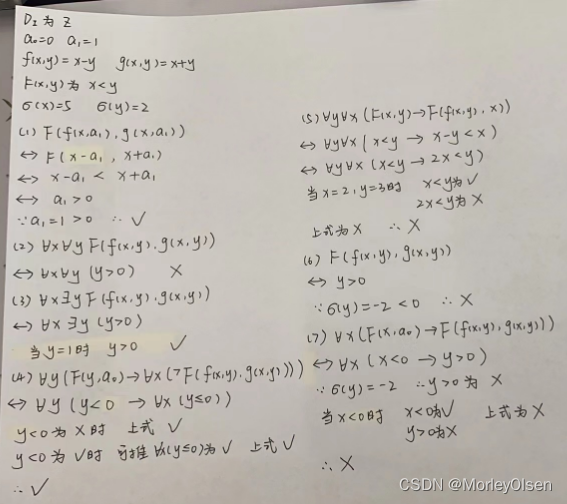 D_I 为 Z
a₀=0 a₁=1
f(x,y)=x-y g(x,y)=x+y
F(x,y)为 x<y
σ(x)=5 σ(y)=2
(1) F(f(x,a₁), g(x,a₁))
↔ F(x-a₁, x+a₁)
↔ x-a₁ < x+a₁
↔ a₁>0
∵a₁=1>0 ∴ √
(2) ∀x∀y F(f(x,y).g(x,y))
↔ ∀x∀y (y>0) ×
(3) ∀x∃y F(f(x,y).g(x,y))
↔ ∀x∃y (y>0)
当y=1时 y>0 √
(4) ∀y(F(y,a₀)→∀x(¬F(f(x,y).g(x,y))))
↔ ∀y (y<0 → ∀x(y≤0))
y<0为×时 上式√
y<0为√时 可推∀x(y≤0)为√ 上式√
∴ √
(5) ∀y∀x(F(x,y)→F(f(x,y),x))
↔ ∀y∀x(x<y → x-y<x)
↔ ∀y∀x(x<y → 2x<y)
当x=2,y=3时 x<y为√
2x<y为×
上式为× ∴ ×
(6) F(f(x,y),g(x,y))
↔ y>0
∵σ(y)=-2<0 ∴ ×
(7) ∀x(F(x,a₀)→F(f(x,y),g(x,y)))
↔ ∀x(x<0 → y>0)
∵σ(y)=-2 ∴y>0为 ×
当x<0时 x<0为√ 上式为×
y>0为×
∴ ×
CSDN @MorleyOlsen